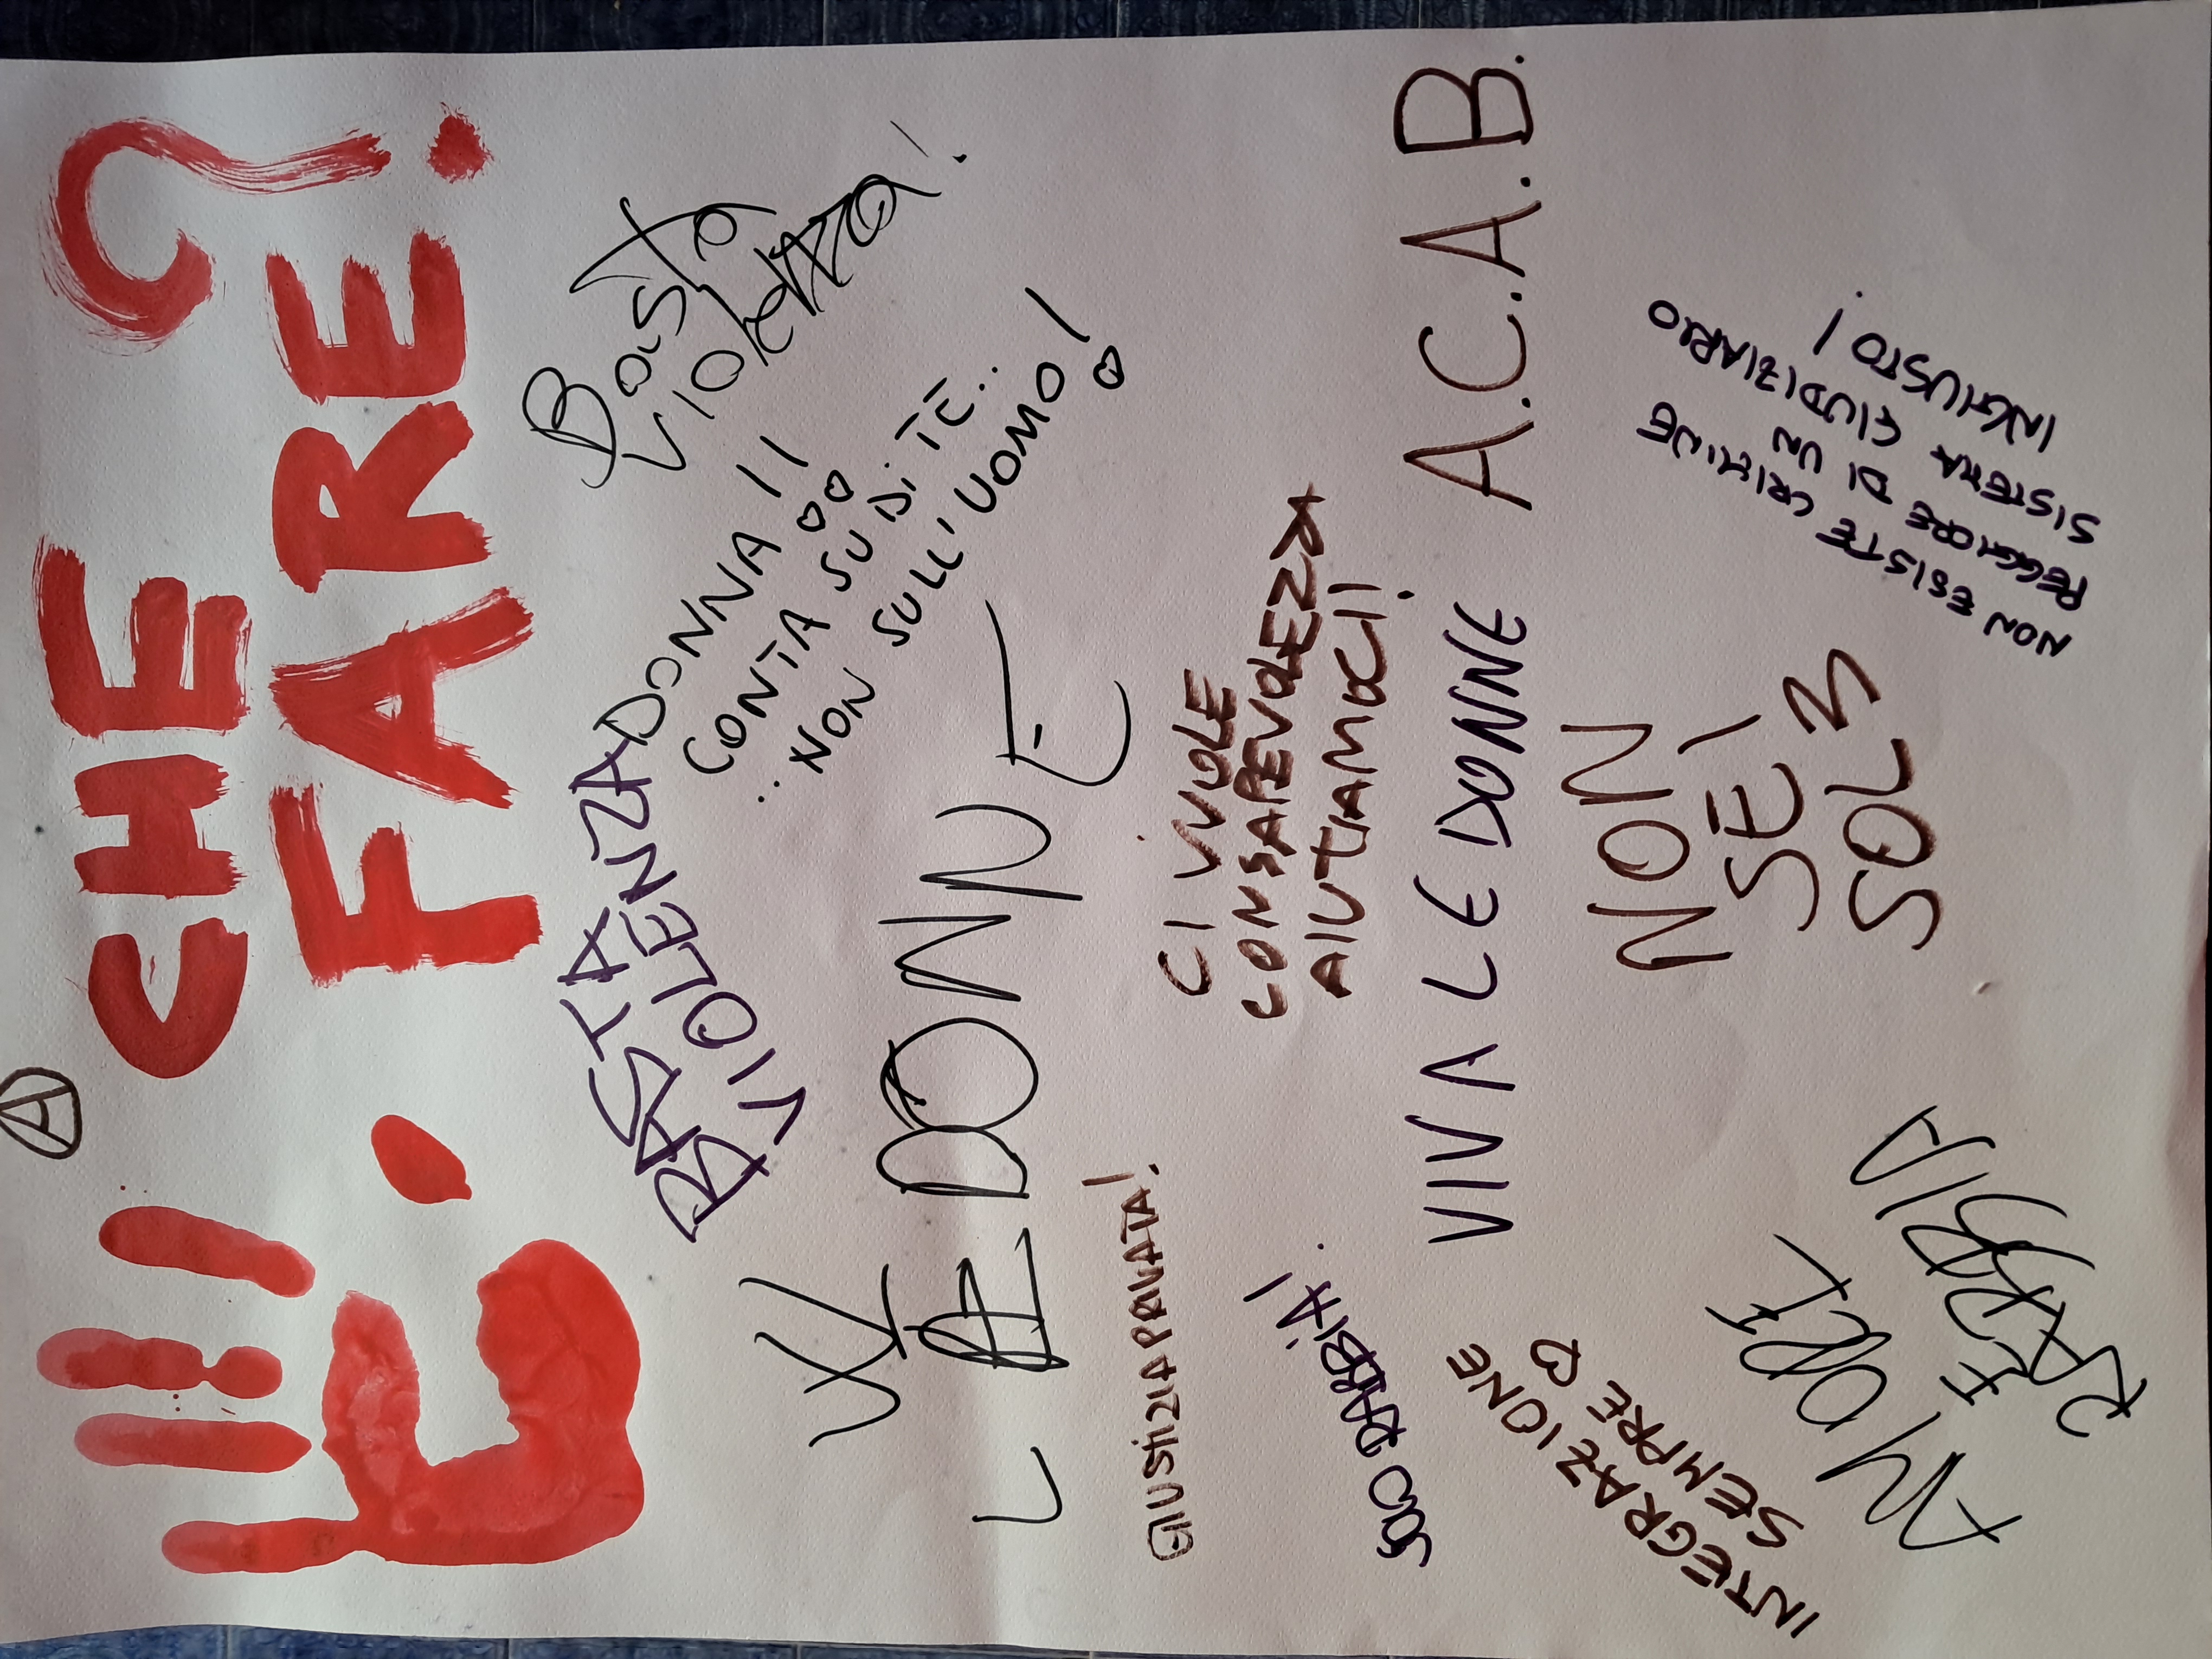 Ⓐ
, CHE
FARE?
BASTA
VIOLENZA
Basta
violenza!
DONNA!!
CONTA SU DI TE..
..NON SULL'UOMO!
W
LE DONNE
GIUSTIZIA PRIVATA!
CI VUOLE
CONSAPEVOLEZZA
AIUTIAMOCI!
SOLO RABBIA!
VIVA LE DONNE
A.C.A.B.
INTEGRAZIONE
SEMPRE
NON
SEI
SOL3
AMORE
E
RABBIA
NON ESISTE CRIMINE
PEGGIORE DI UN
SISTEMA GIUDIZIARIO
INGIUSTO!